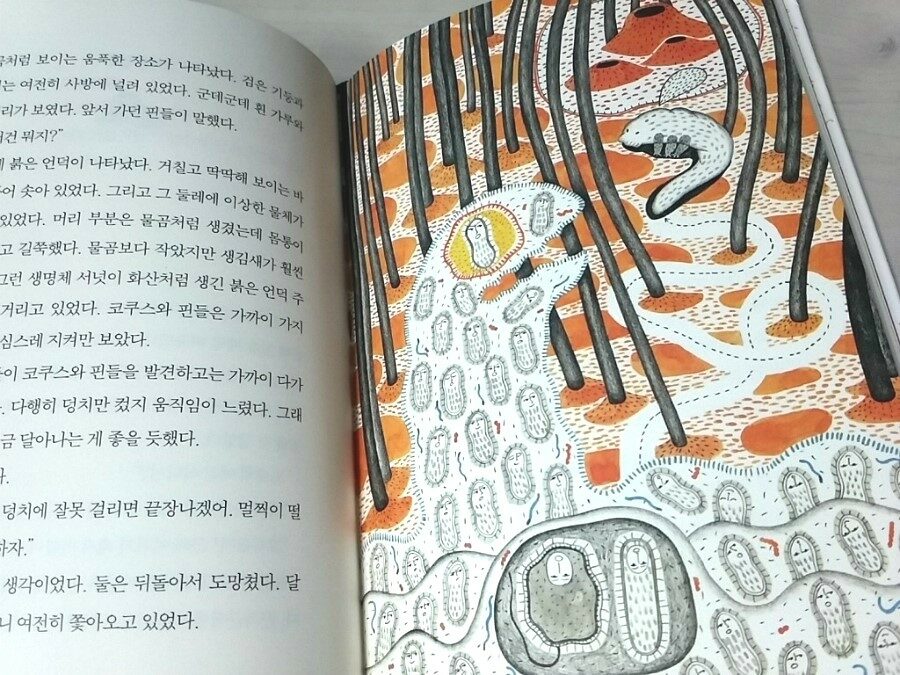 처럼 보이는 움푹한 장소가 나타났다. 검은 기둥과
는 여전히 사방에 널려 있었다. 군데군데 흰 가루와
리가 보였다. 앞서 가던 핀들이 말했다.
건 뭐지?”
붉은 언덕이 나타났다. 거칠고 딱딱해 보이는 바
솟아 있었다. 그리고 그 둘레에 이상한 물체가
있었다. 머리 부분은 물곰처럼 생겼는데 몸통이
고 길쭉했다. 물곰보다 작았지만 생김새가 훨씬
그런 생명체 서넛이 화산처럼 생긴 붉은 언덕 주
거리고 있었다. 코쿠스와 핀들은 가까이 가지
심스레 지켜만 보았다.
이 코쿠스와 핀들을 발견하고는 가까이 다가
다행히 덩치만 컸지 움직임이 느렸다. 그래
금 달아나는 게 좋을 듯했다.
다.
덩치에 잘못 걸리면 끝장나겠어. 멀찍이 떨
하자.”
생각이었다. 둘은 뒤돌아서 도망쳤다. 달
니 여전히 쫓아오고 있었다.